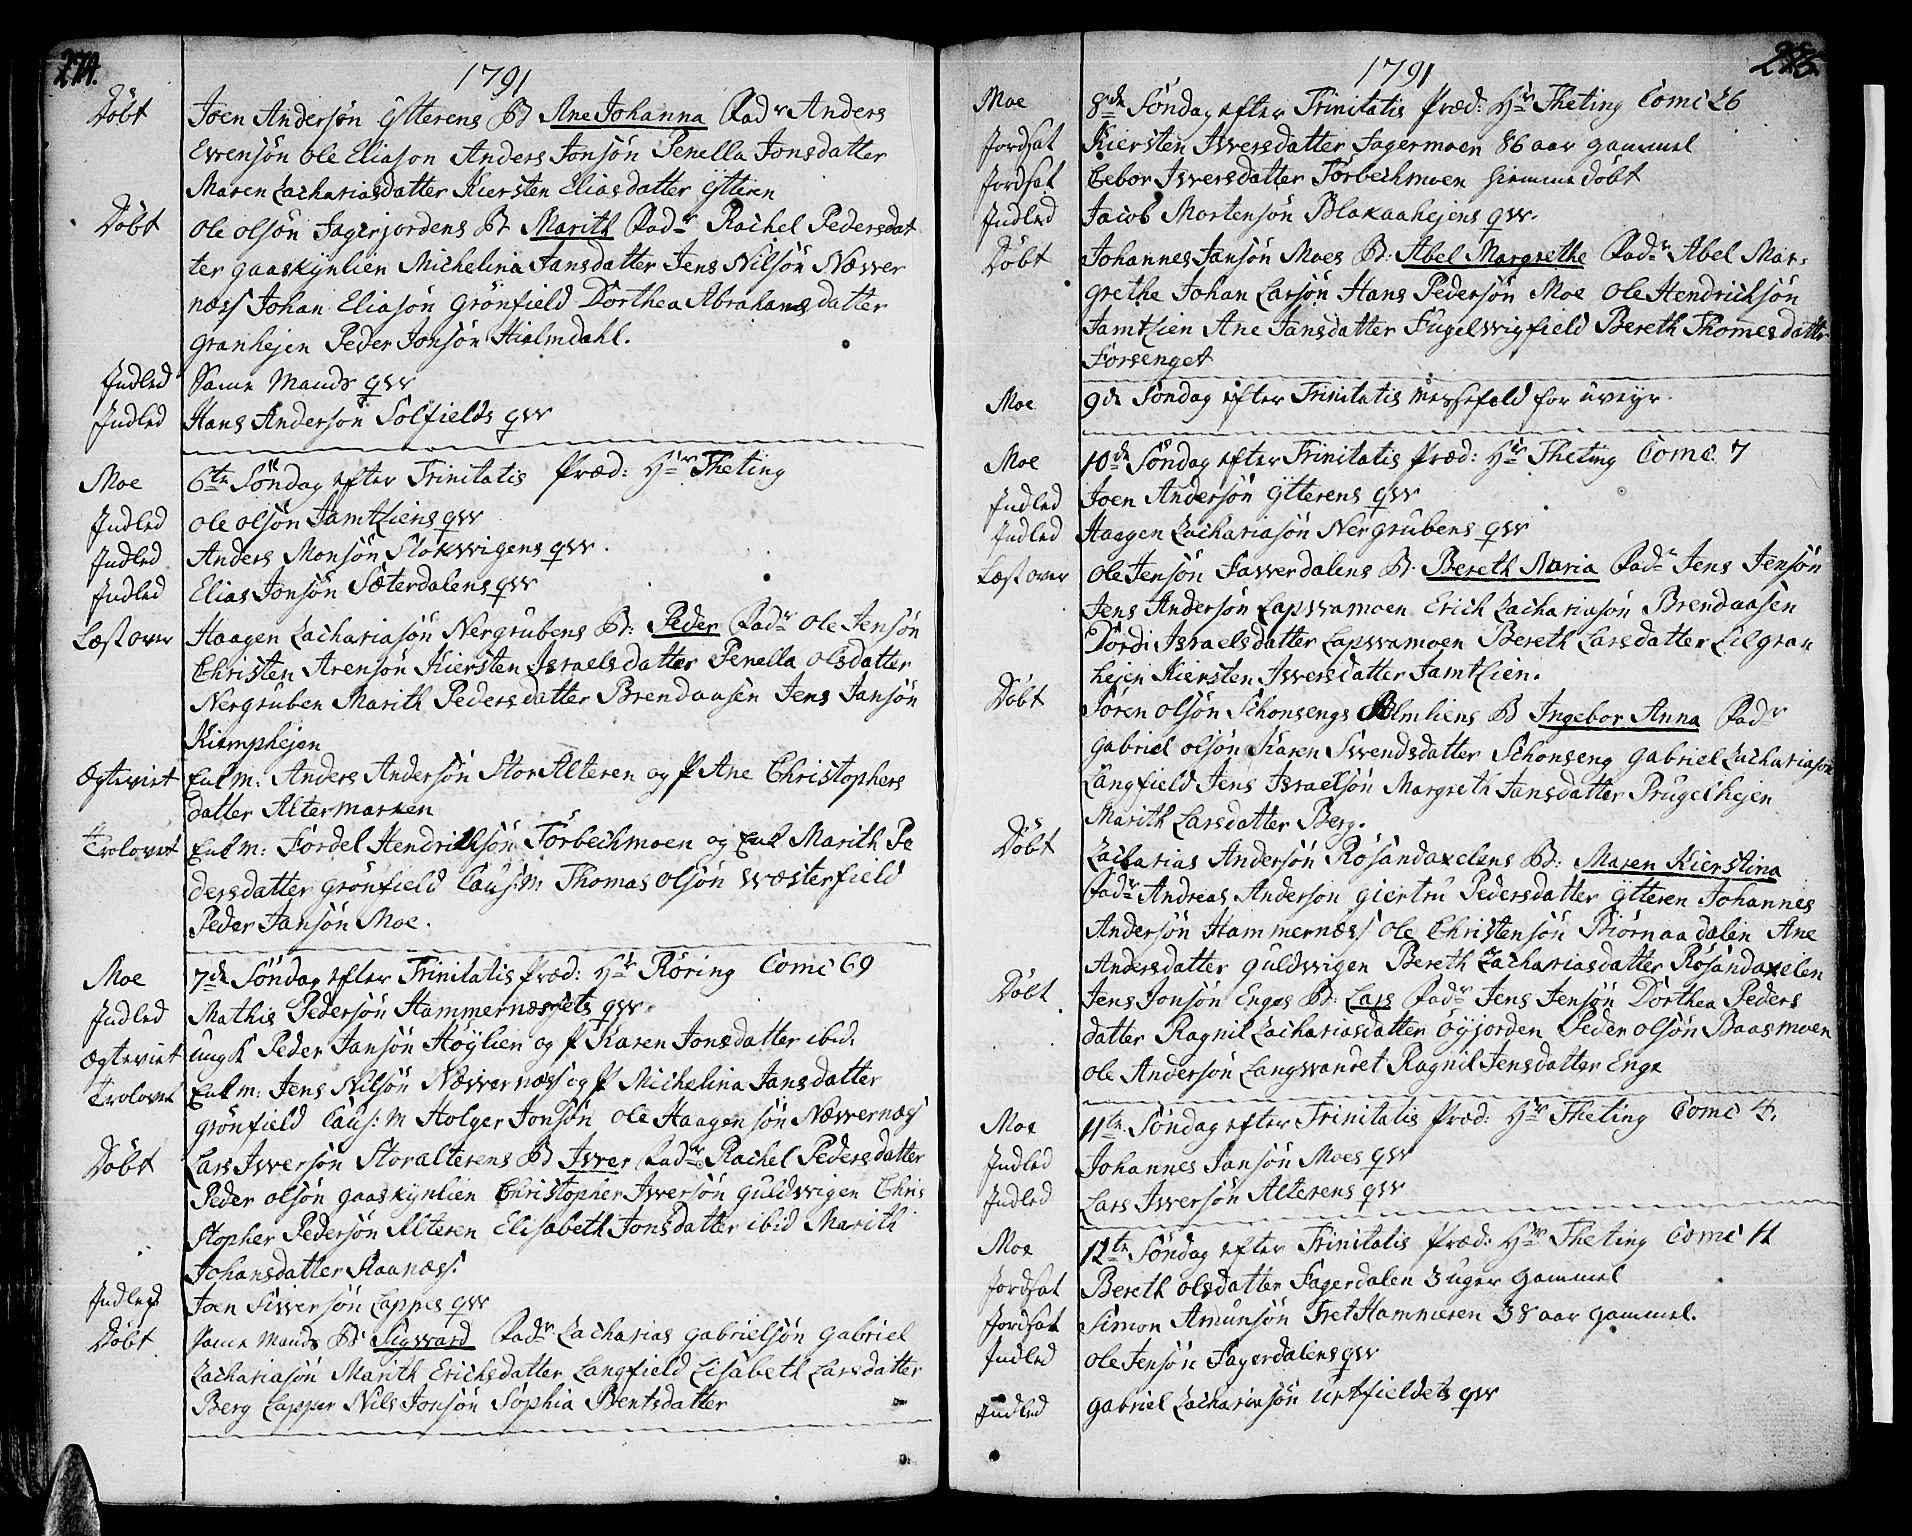 274.
1791
Döbt Joen Andersön Ytterens B Ane Johanna Fadr Anders
Evvensön Ole Eliason Anders Jonsön Penella Jonsdatter
Maren Zachariasdatter Kiersten Eliasdatter Ytteren
Döbt Ole Olsön Fagerjordens B Marith Fadr Rachel Pedersdat
ter Gaaskynlien Michelina Jansdatter Jens Nilsön Nævver
næss Johan Eliasön Grönfield Dorthea Abrahamsdatter
Granhejen Peder Jonsön Hielmdahl.
Indled Same Mands qvv
Indled Hans Andersön Solfields qvv
Moe 6te Söndag efter Trinitatis Præd: Hr Theting
Indled Ole Olsön Jamtliens qvv
Indled Anders Monsön Stokvvigens qvv.
Indled Elias Jonsön Sæterdalens qvv
Læst over Haagen Zachariasön Nergrubens B: Peder Fadr Ole Jensön
Christen Arensön Kiersten Israelsdatter Penella Olsdatter
Nergruben Marith Pedersdatter Brendaasen Jens Jansön
Kiemphejen
Ægteviet Enkm: Anders Andersön StorAlteren og P Ane Christophers
datter Altermarken
Trolovet Enkm: Fordel Hendrichsön Törbechmoen og Enk Marith Pe
dersdatter Grönfield Caus: M Thomas Olsön Wæsterfield
Peder Jansön Moe.
Moe 7de Söndag efter Trinitatis Præd: Hr Röring Comc 69
Indled Mathis Pedersön Hammernæssets qvv.
Ægteviet ungk Peder Jansön Höylien og P Karen Jonsdatter ibid.
Trolovet Enkm: Jens Nilsön Nævvernæss og P Michelina Jansdatter
Grönfield Caus: M Holger Jonsön Ole Haagensön Nævvernæss
Döbt Lars Ivversön Storalterens B Ivver Fadr Rachel Pedersdatter
Peder Olsön Gaaskynlien Christopher Ivversön Guldvvigen Chris
stopher Pedersön Alteren Elisabeth Jonsdatter ibid Marith
Johansdatter Raanæss.
Indled Joen Sivversön Lappes qvv
Döbt Same Mands B: Sigvvard Fadr Zacharias Gabrielsön Gabriel
Zachariasön Marith Erichsdatter Langfield Lisabeth Larsdatter
Berg Lapper Nils Jonsön Sophia Bentsdatter
275.
1791
Moe 8de Söndag efter Trinitatis Præd: Hr Theting Comc 26
Jordsat Kiersten Ivversdatter Fagermoen 86 aar gammel
Jordsat Cebor Ivversdatter Törbechmoen hiemmedöbt
Indled Jacob Mortensön Blakaahejens qvv.
Döbt Johannes Jansön Moes B: Abel Margrethe Fadr Abel Mar-
grethe Johan Larsön Hans Pedersön Moe Ole Hendrichsön
Jamtlien Ane Jansdatter Fugelvvigfield Bereth Thomesdatter
Forsenget
Moe 9de Söndag efter Trinitatis Messefald for uveyr.
Moe 10de Söndag efter Trinitatis Præd: Hr Theting Comc 7
Indled Joen Andersön Ytterens qvv
Indled Haagen Zachariasön Nergrubens qvv
Læst over Ole Jensön Favverdalens B. Bereth Maria Fadr Jens Jensön
Jens Andersön Lapvvamoen Erich Zachariasön Brendaasen
Dordi Israelsdatter Lapvvamoen Bereth Larsdatter Lilgran
hejen Kiersten Ivversdatter Jamtlien.
Döbt Sören Olsön Schonsengs Almliens B Ingebor Anna Fadr
Gabriel Olsön Karen Svvendsdatter Schonseng Gabriel Zachariasön
Langfield Jens Israelsön Margreth Jansdatter Prügelhejen
Marith Larsdatter Berg.
Döbt Zacharias Andersön Rösandaxelens B: Maren Kierstina
Fadr Andreas Anderson Giertru Pedersdatter Ytteren Johannes
Andersön Hammernæss Ole Christensön Biörnaadalen Ane
Andersdatter Guldvvigen Bereth Zachariasdatter Rösandaxelen
Döbt Jens Jonsön Enges B: Lars Fadr Jens Jensön Dorthea Peders
datter Ragnil Zachariasdatter Öyjorden Peder Olsön Baasmoen
Ole Andersön Langvvandet Ragnil Jensdatter Enge
Moe 11te Söndag efter Trinitatis Præd: Hr Theting Comc 4.
Indled Johannes Jansön Moes qvv
Indled Lars Ivversön Alterens qvv
Moe 12te Söndag efter Trinitatis Præd: Hr Theting Comc 11
Jordsat Bereth Olsdatter Fagerdalen 3 uger gammel
Jordsat Simon Amunsön Tret Hammeren 38 aar gammel.
Indled Ole Jensön Fagerdalens qvv
Indled Gabriel Zachariasön Urtfieldets qvv